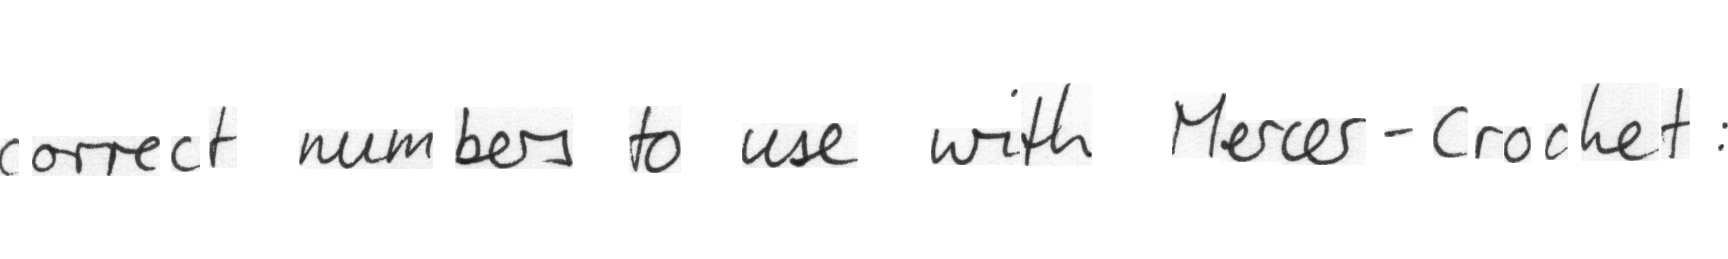 correct numbers to use with Mercer-Crochet: